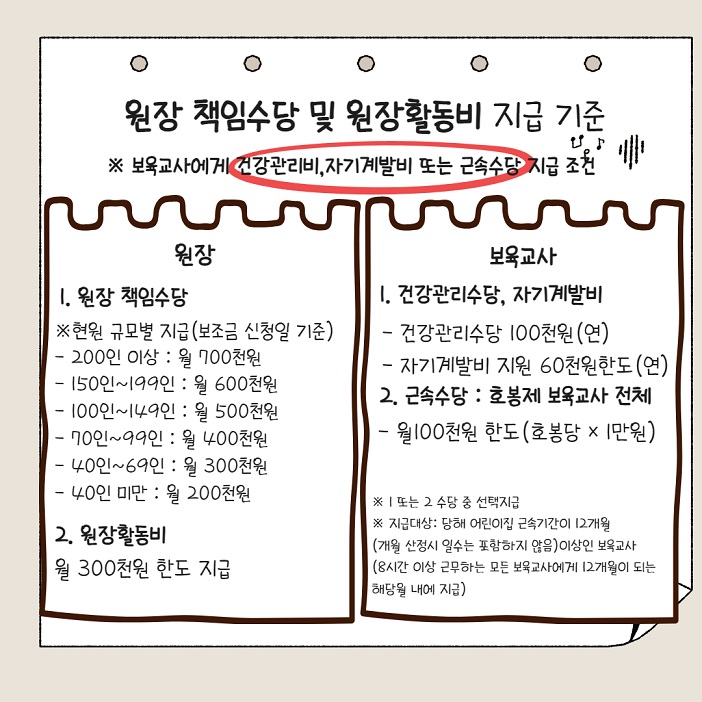 원장 책임수당 및 원장활동비 지급 기준
※ 보육교사에게 건강관리비,자기계발비 또는 근속수당 지급 조건
원장
1. 원장 책임수당
※현원 규모별 지급(보조금 신청일 기준)
- 200인 이상 : 월 700천원
- 150인~199인 : 월 600천원
- 100인~149인 : 월 500천원
- 70인~99인 : 월 400천원
- 40인~69인 : 월 300천원
- 40인 미만 : 월 200천원
2. 원장활동비
월 300천원 한도 지급
보육교사
1. 건강관리수당, 자기계발비
- 건강관리수당 100천원(연)
- 자기계발비 지원 60천원한도(연)
2. 근속수당 : 호봉제 보육교사 전체
- 월100천원 한도(호봉당 × 1만원)
※ 1 또는 2 수당 중 선택지급
※ 지급대상: 당해 어린이집 근속기간이 12개월
(개월 산정시 일수는 포함하지 않음)이상인 보육교사
(8시간 이상 근무하는 모든 보육교사에게 12개월이 되는
해당월 내에 지급)